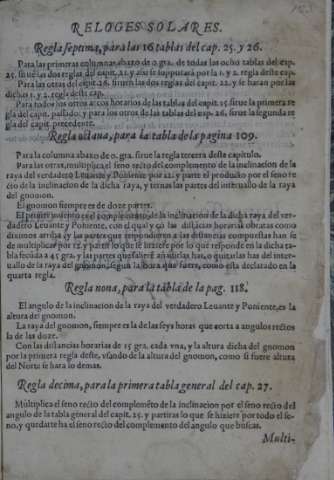 RELOGES SOLARES.
Regla septima, para las 16 tablas del cap. 25. y 26.
Para las primeras columnas abaxo de 0. gra. de todas las ocho tablas del cap.
25. sirue las dos reglas del capit. 21. y assi se supputarà por la 1. y 2. regla deste cap.
Para las otras del capit. 26. siruen las dos reglas del capit. 22. y se haràn por las
dichas 1. y 2. regla deste cap.
Para todos los otros arcos horarios de las tablas del capit. 25 sirue la primera re
gla del capit. passado; y para los otros de las tablas del capit. 26. sirue la segunda re
gla del capit. precedente.
Regla octaua, para la tabla de la pagina 109.
Para la columna abaxo de 0. gra. sirue la regla tercera deste capitulo.
Para las otras, multiplica el seno recto del complemento de la inclinacion de la
raya del verdadero Leuante y Poniente por 12. y parte el producto por el seno re
cto de la inclinacion de la dicha raya, y ternas las partes del interuallo de la raya
del gnomon.
El gnomon siempre es de doze partes.
El primer numero es el complemento de la inclinacion de la dicha raya del ver-
dadero Leuante y Poniente, con el qual y con las distancias horarias obraras como
diximos arriba, y las partes que respondieren a las distancias compuestas han se
de multiplicar por 12. y partir lo que se hiziere por lo que responde en la dicha ta-
bla fecũda a 45 gra. y las partes que saliere añadirlas has, o quitarlas has del inter-
uallo de la raya del gnomon, segun la hora que fuere, como esta declarado en la
quarta regla.
Regla nona, para la tabla de la pag. 118.
El angulo de la inclinacion de la raya del verdadero Leuante y Poniente, es la
altura del gnomon.
La raya del gnomon, siempre es la de las seys horas que corta a angulos rectos
la de las doze.
Con las distancias horarias de 15 gra. cada vna, y la altura dicha del gnomon
por la primera regla deste, vsando de la altura del gnomon, como si fuere altura
del Norte se hara lo demas.
Regla decima, para la primera tabla general del cap. 27.
Multiplica el seno recto del complemẽto de la inclinacion por el seno recto del
angulo de la tabla general del capit. 25. y partiras lo que se hiziere por todo el se-
no, y quedarte ha el seno recto del complemento del angulo que buscas.
Multi-